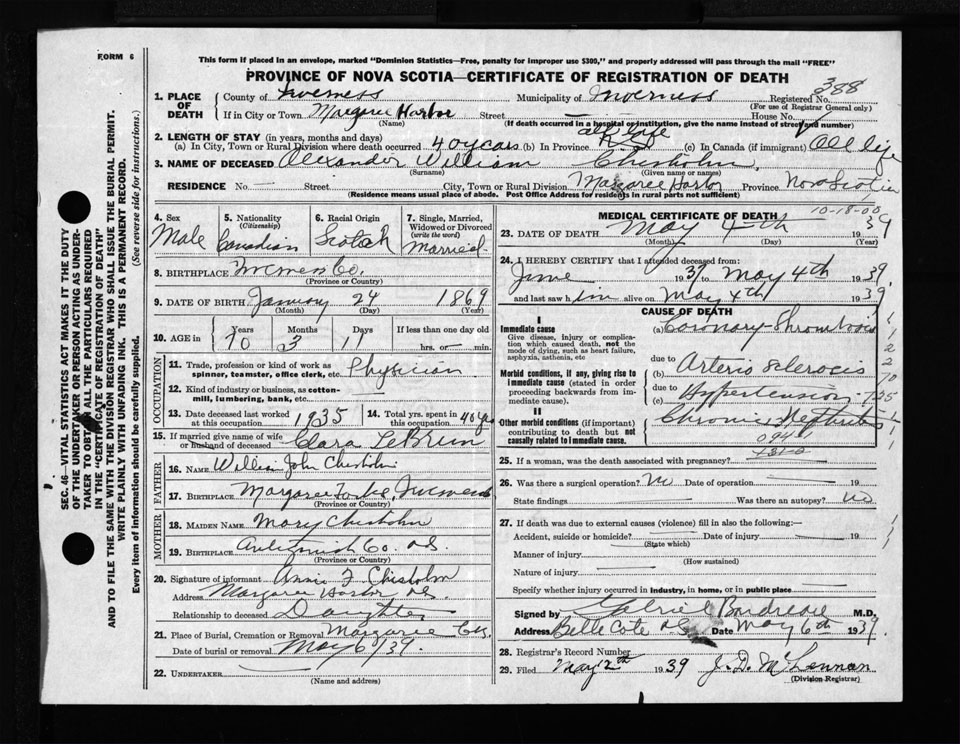 FORM 6
This form if placed in an envelope, marked "Dominion Statistics—Free, penalty for improper use $300," and properly addressed will pass through the mail "FREE"
PROVINCE OF NOVA SCOTIA—CERTIFICATE OF REGISTRATION OF DEATH
1. PLACE OF DEATH County of Inverness Municipality of Inverness Registered No. 388
(For use of Registrar General only)
If in City or Town Margaree Harbor Street — House No.
(Name) (If death occurred in a hospital or institution, give the name instead of street and number)
2. LENGTH OF STAY (in years, months and days) all life
(a) In City, Town or Rural Division where death occurred 40 years (b) In Province (c) In Canada (if immigrant) All life
3. NAME OF DECEASED Alexander William Chisholm
(Surname) (Given name or names)
RESIDENCE No. — Street City, Town or Rural Division Margaree Harbor Province Nova Scotia
(Residence means usual place of abode. Post Office Address for residents in rural parts not sufficient)
4. Sex Male
5. Nationality (Citizenship) Canadian
6. Racial Origin Scotch
7. Single, Married, Widowed or Divorced (write the word) Married
8. BIRTHPLACE Inverness Co.
(Province or Country)
9. DATE OF BIRTH January 24 1869
(Month) (Day) (Year)
10. AGE in Years 70 Months 3 Days 11 If less than one day old
hrs. or — min.
OCCUPATION
11. Trade, profession or kind of work as spinner, teamster, office clerk, etc. Physician
12. Kind of industry or business, as cotton-mill, lumbering, bank, etc.
13. Date deceased last worked at this occupation 1935 14. Total yrs. spent in this occupation 40 yr
15. If married give name of wife or husband of deceased Clara LeBrun
FATHER
16. Name William John Chisholm
17. Birthplace Margaree Forks, Inverness
(Province or Country)
MOTHER
18. Maiden Name Mary Chisholm
19. Birthplace Antigonish Co. N.S.
(Province or Country)
20. Signature of informant Annie F. Chisholm
Address Margaree Harbor N.S.
Relationship to deceased Daughter
21. Place of Burial, Cremation or Removal Margaree
Date of burial or removal May 6/39.
22. UNDERTAKER
(Name and address)
MEDICAL CERTIFICATE OF DEATH
10-18-00
23. DATE OF DEATH May 4th 1939
(Month) (Day) (Year)
24. I HEREBY CERTIFY that I attended deceased from:
June 1937 to May 4th 1939.
and last saw him alive on May 4th 1939
CAUSE OF DEATH
I
Immediate cause
Give disease, injury or complication which caused death, not the mode of dying, such as heart failure, asphyxia, asthenia, etc
(a) Coronary Thrombosis
due to
Morbid conditions, if any, giving rise to immediate cause (stated in order proceeding backwards from immediate cause).
(b) Arterio Sclerosis
due to
(c) Hypertension
II
Other morbid conditions (if important) contributing to death but not causally related to immediate cause.
Chronic Nephritis
094
131-a
25. If a woman, was the death associated with pregnancy?
26. Was there a surgical operation? No Date of operation 19
State findings Was there an autopsy? No
27. If death was due to external causes (violence) fill in also the following:—
Accident, suicide or homicide? Date of injury 19
(State which)
Manner of injury
(How sustained)
Nature of injury
Specify whether injury occurred in industry, in home, or in public place
Signed by Gabriel Boudreau M.D.
Address Belle Cote N.S. Date May 6th 1939.
28. Registrar's Record Number
29. Filed May 1939 J. D. McLennan
(Division Registrar)
SEC. 46—VITAL STATISTICS ACT MAKES IT THE DUTY OF THE UNDERTAKER OR PERSON ACTING AS UNDERTAKER TO OBTAIN ALL THE PARTICULARS REQUIRED IN THE "CERTIFICATE OF REGISTRATION OF DEATH" AND TO FILE THE SAME WITH THE DIVISION REGISTRAR WHO SHALL ISSUE THE BURIAL PERMIT.
WRITE PLAINLY WITH UNFADING INK. THIS IS A PERMANENT RECORD.
Every item of information should be carefully supplied. (See reverse side for instructions.)